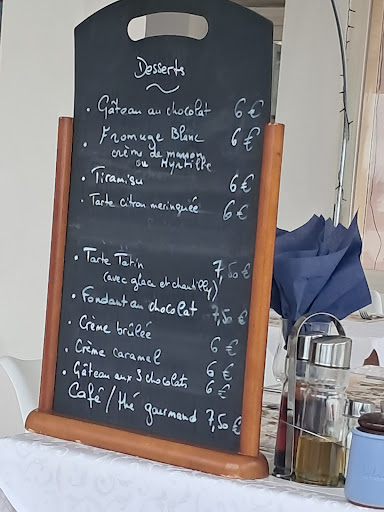 Desserts
. Gâteau au chocolat 6 €
. Fromage Blanc 6 €
crème de marron
ou Myrtille
. Tiramisu 6 €
. Tarte citron meringuée 6 €
. Tarte Tatin 7,50 €
(avec glace et chantilly)
. Fondant au chocolat 7,50 €
. Crème brûlée 6 €
. Crème caramel 6 €
. Gâteau aux 3 chocolats 6 €
Café / thé gourmand 7,50 €